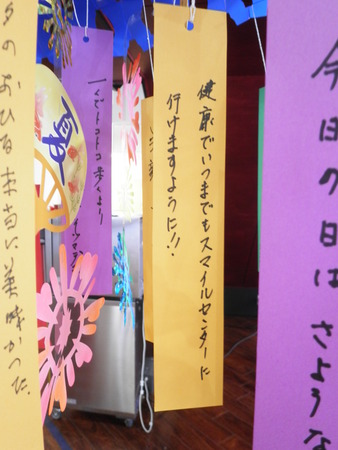 今日7日は さような
健康でいつまでもスマイルセンターに
行けますように!!
トコトコ歩くより
夕のおひる本当に美味かった